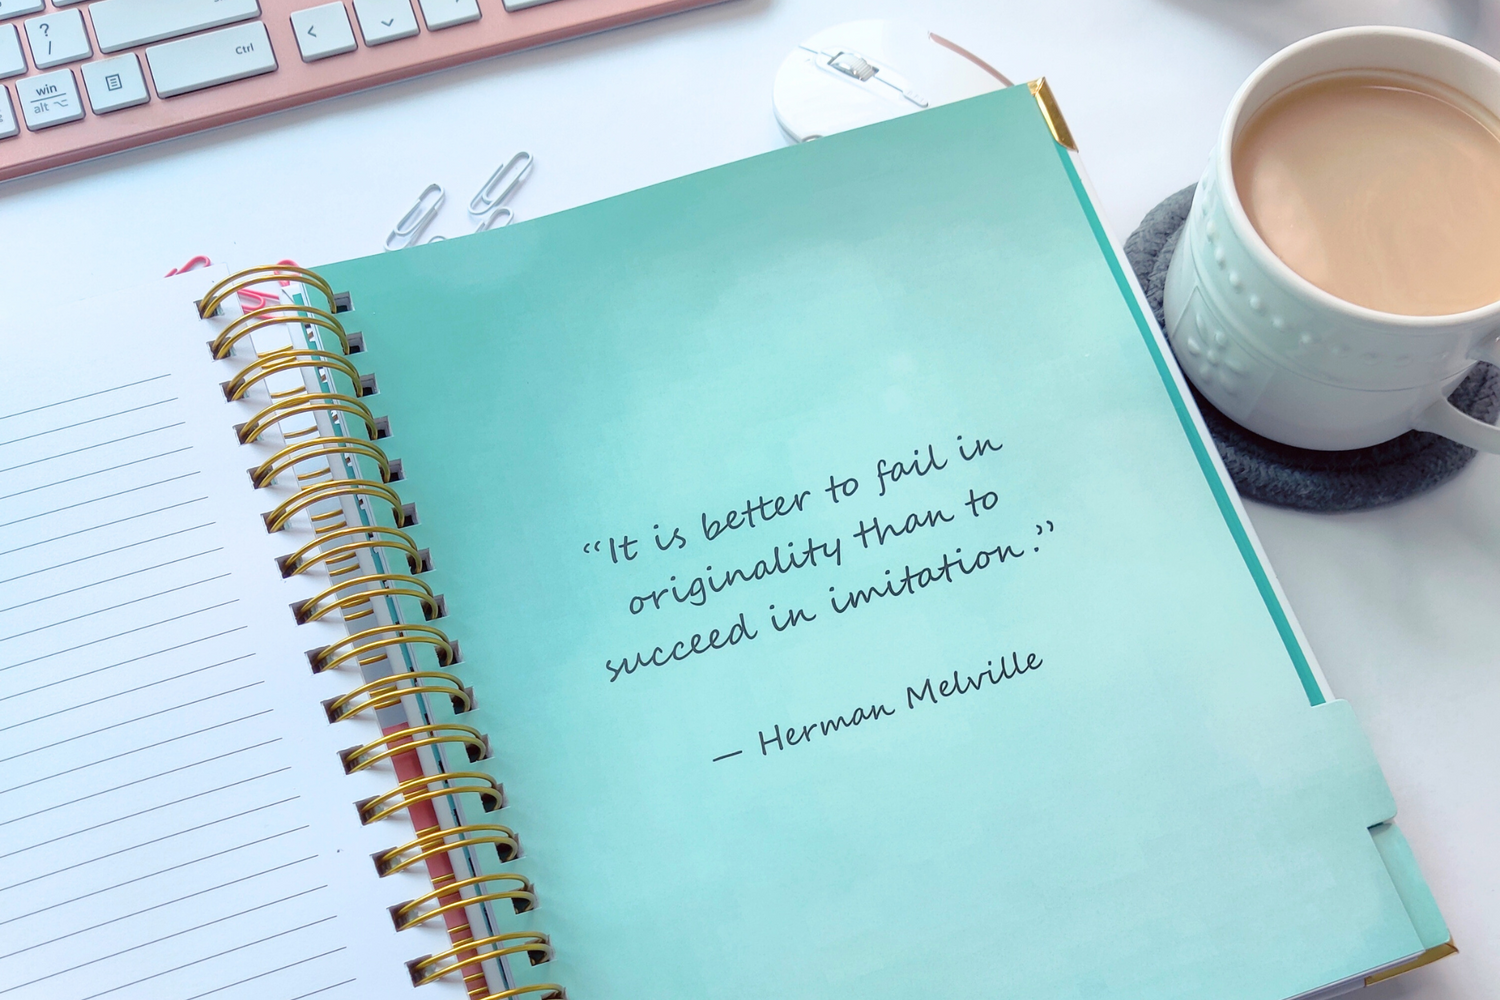 ? /
Ctrl
win
alt
“It is better to fail in
originality than to
succeed in imitation.”
— Herman Melville